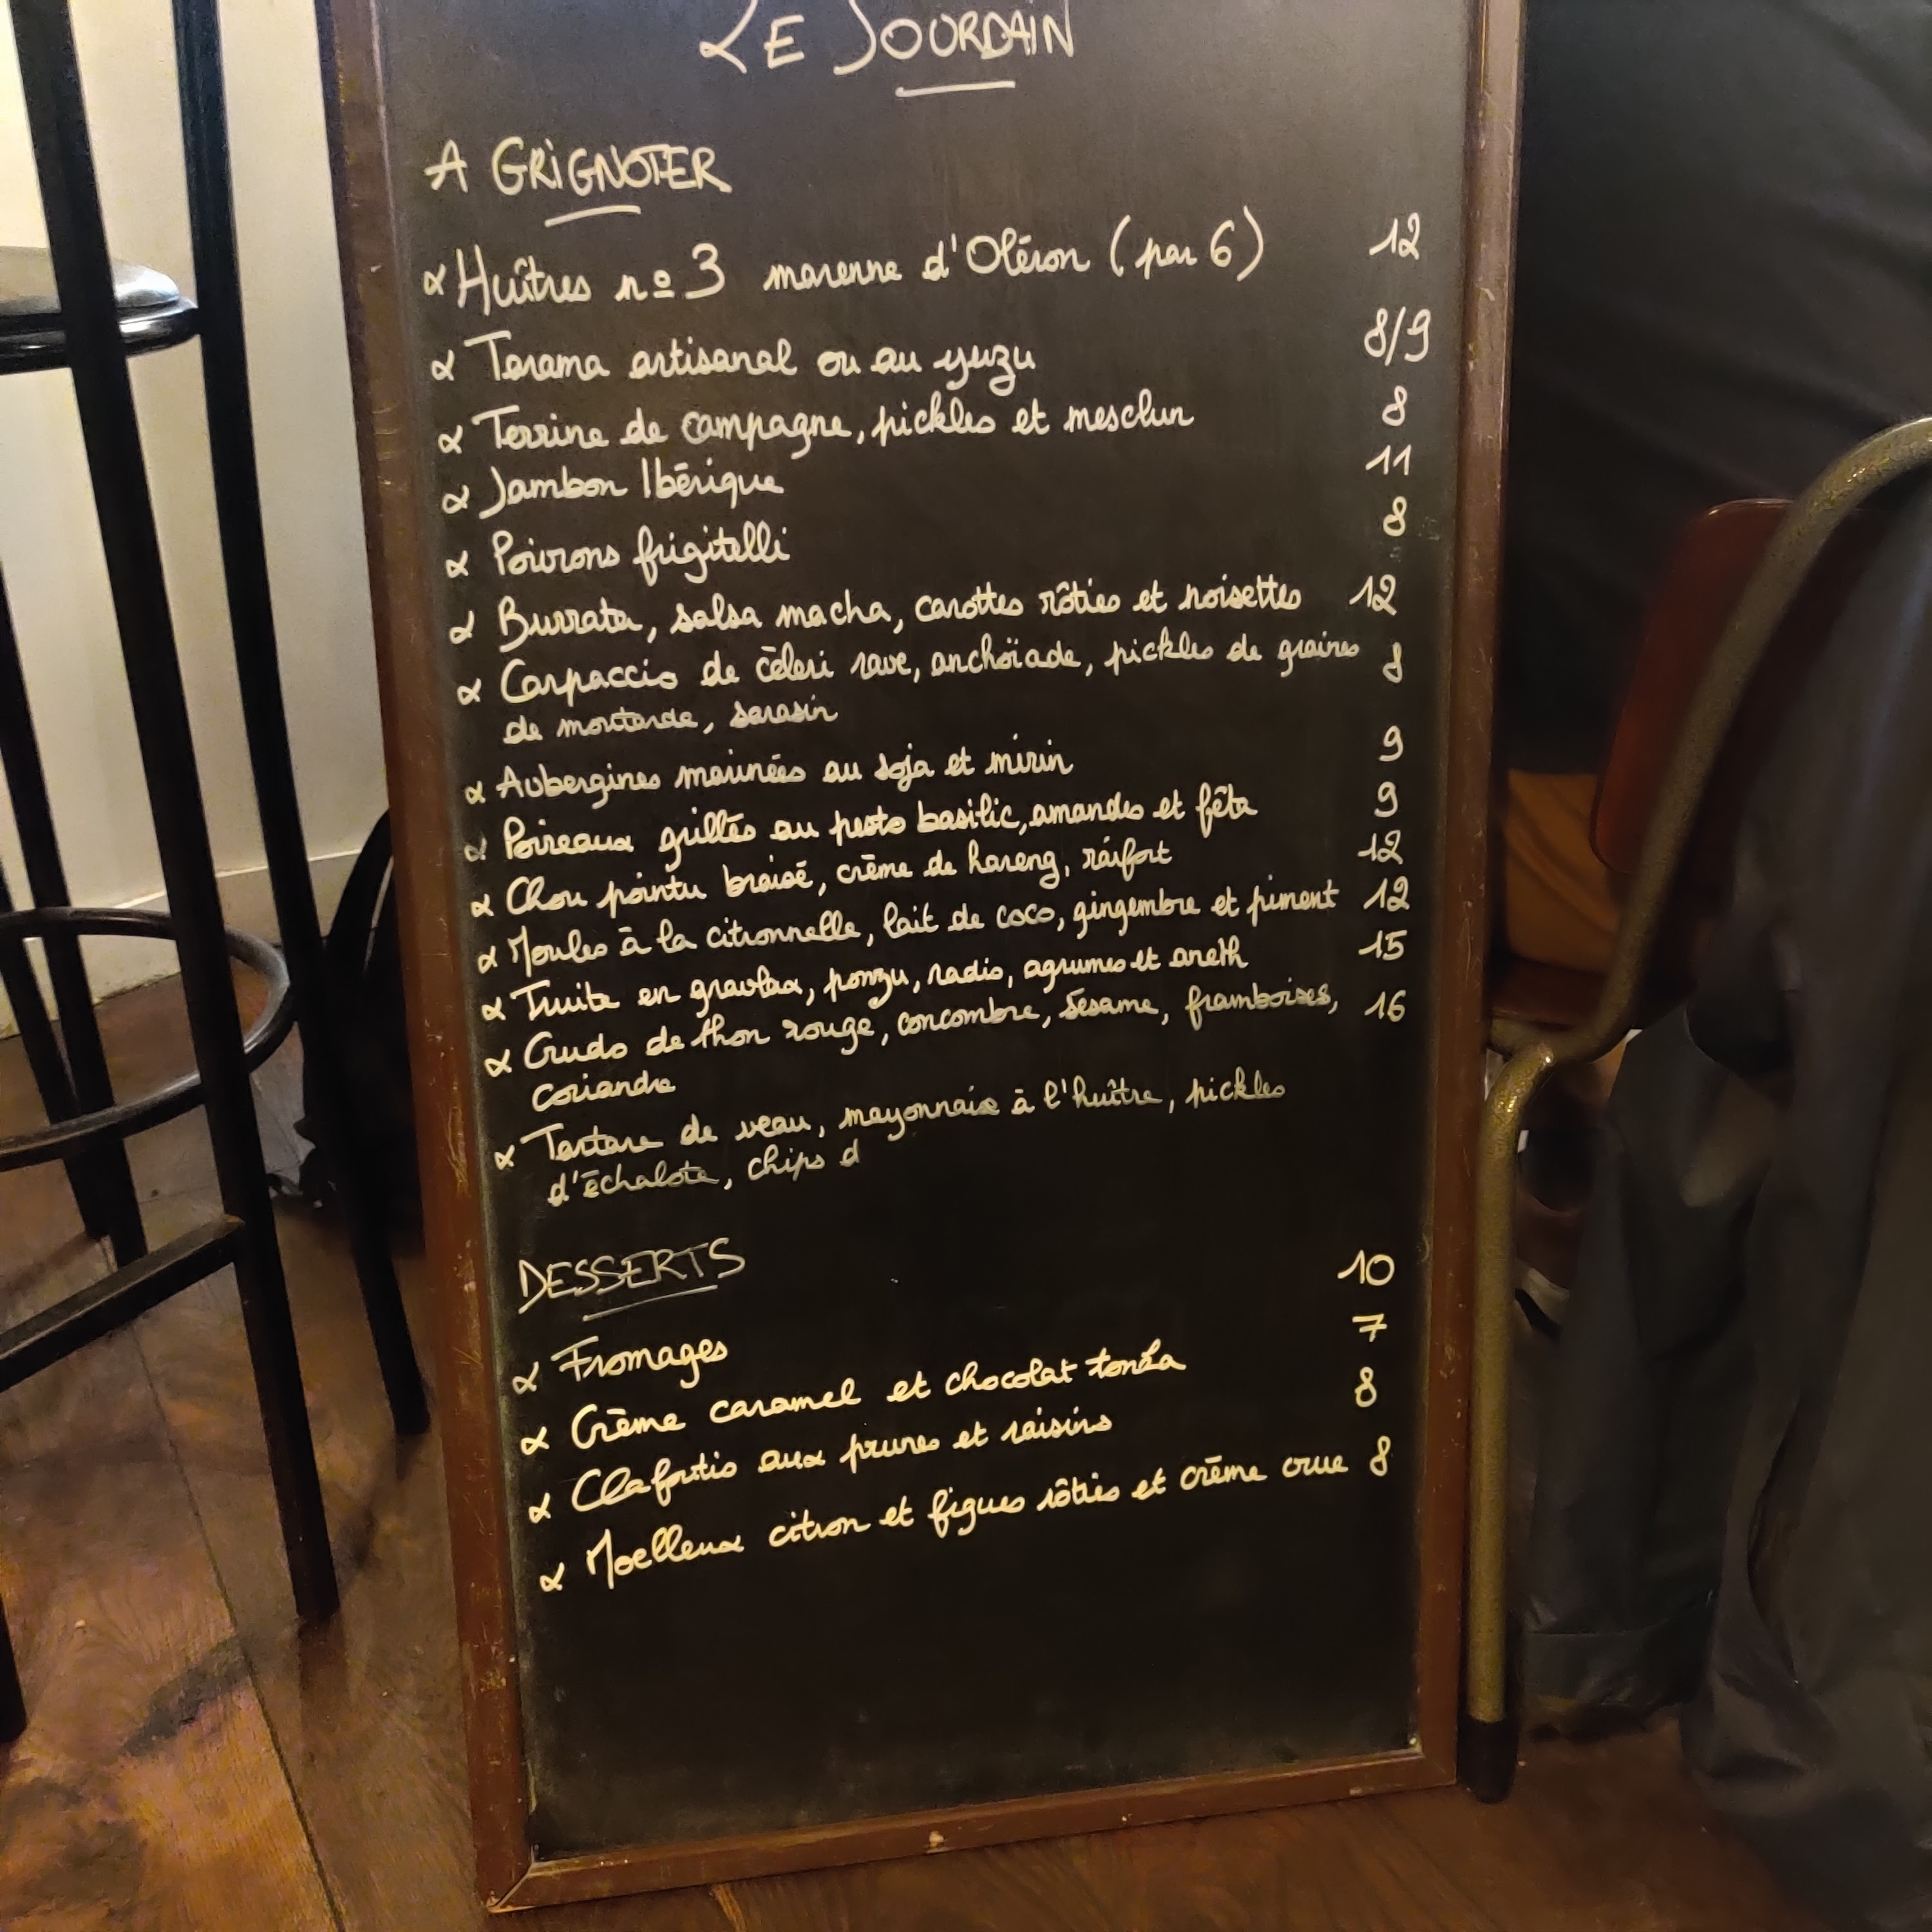 LE JOURDAIN
A GRIGNOTER
Huîtres nº3 marenne d'Oléron (par 6) 12
Tarama artisanal ou au yuzu 8/9
Terrine de campagne, pickles et mesclun 8
Jambon Ibérique 11
Poivrons frigitelli 8
Burrata, salsa macha, carottes rôties et noisettes 12
Carpaccio de céleri rave, anchoïade, pickles de graines 8
de moutarde, sarasin
Aubergines marinées au soja et mirin 9
Poireaux grillés au pesto basilic, amandes et fêta 9
Chou pointu braisé, crème de hareng, raifort 12
Moules à la citronnelle, lait de coco, gingembre et piment 12
Truite en gravlax, ponzu, radis, agrumes et aneth 15
Crudo de thon rouge, concombre, sésame, framboises, 16
coriandre
Tartare de veau, mayonnaise à l'huître, pickles
d'échalote, chips d
DESSERTS
Fromages 10
Crème caramel et chocolat tonka 7
Clafoutis aux prunes et raisins 8
Moelleux citron et figues rôties et crème crue 8